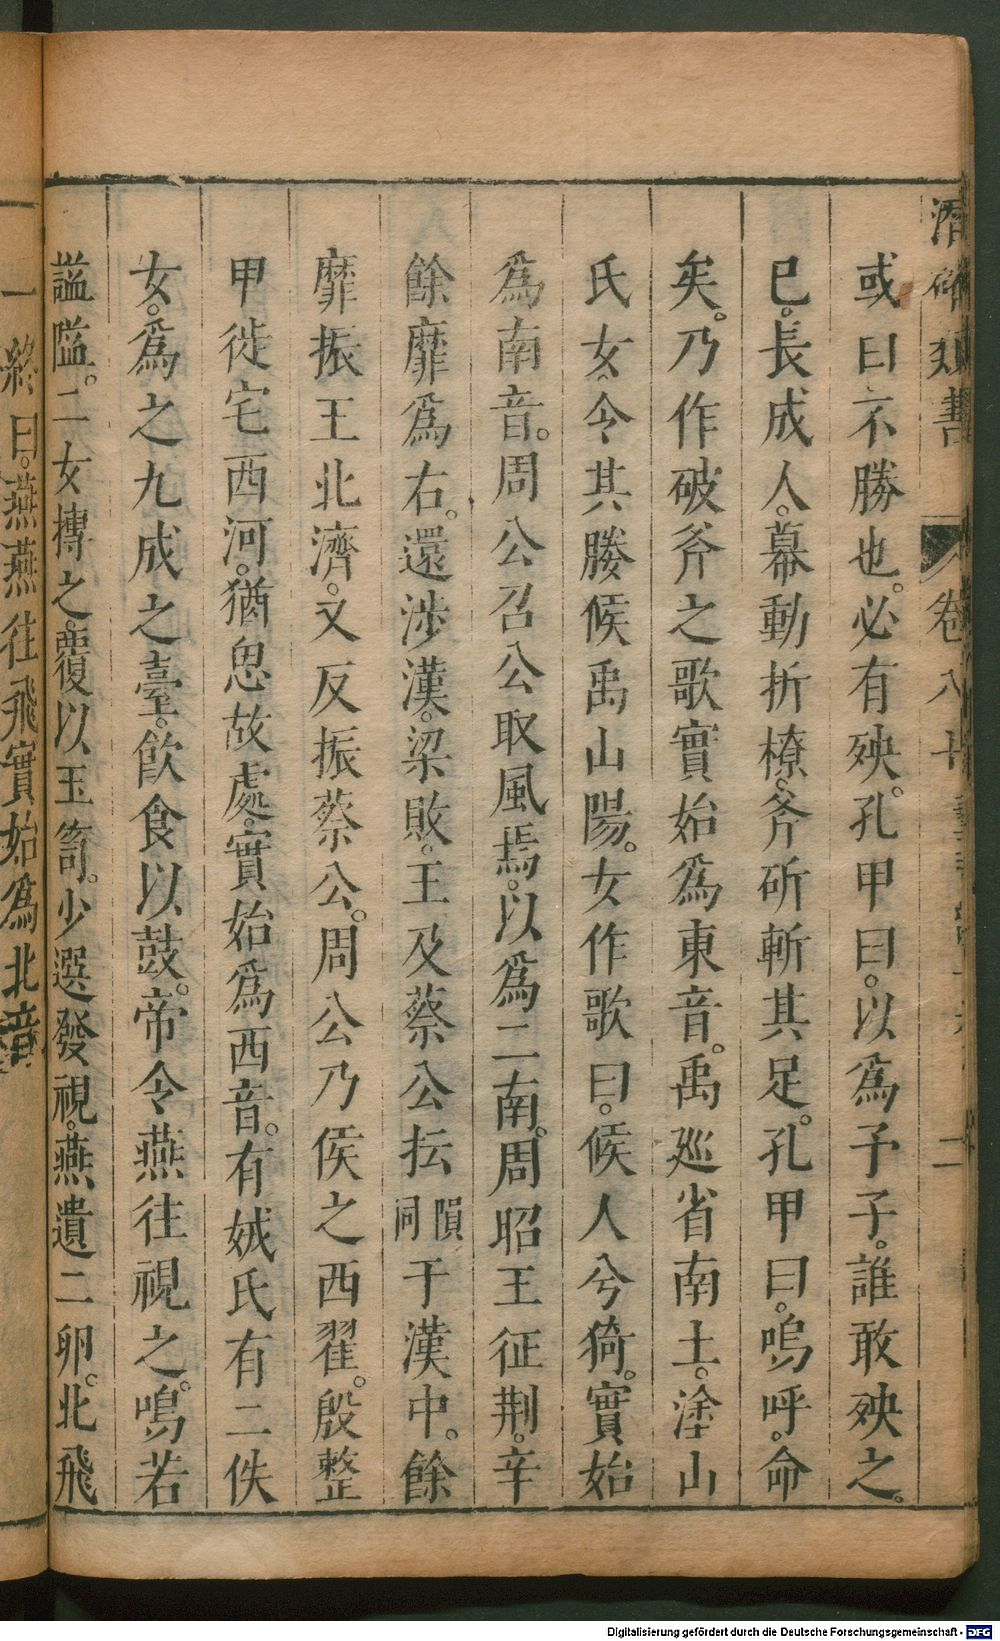 潛確類書 卷八十 二
或曰不勝也。必有殃。孔甲曰。以爲予子。誰敢殃之。
已。長成人。幕動折橑。斧斫斬其足。孔甲曰。嗚呼。命
矣。乃作破斧之歌實始爲東音。禹廵省南土。塗山
氏女。令其媵候禹山陽。女作歌曰。候人兮猗。實始
爲南音。周公召公取風焉。以爲二南。周昭王征荆。辛
餘靡爲右。還涉漢。梁敗。王及蔡公抎隕同于漢中。餘
靡振王北濟。又反振蔡公。周公乃侯之西翟。殷整
甲徙宅西河。猶思故處。實始爲西音。有娀氏有二佚
女。爲之九成之臺。飲食以鼓。帝令燕往視之。鳴若
謚隘。二女摶之。覆以玉筐。少選發視。燕遺二卵。北飛
一終曰。燕燕往飛實始爲北音
Digitalisierung gefördert durch die Deutsche Forschungsgemeinschaft - DFG